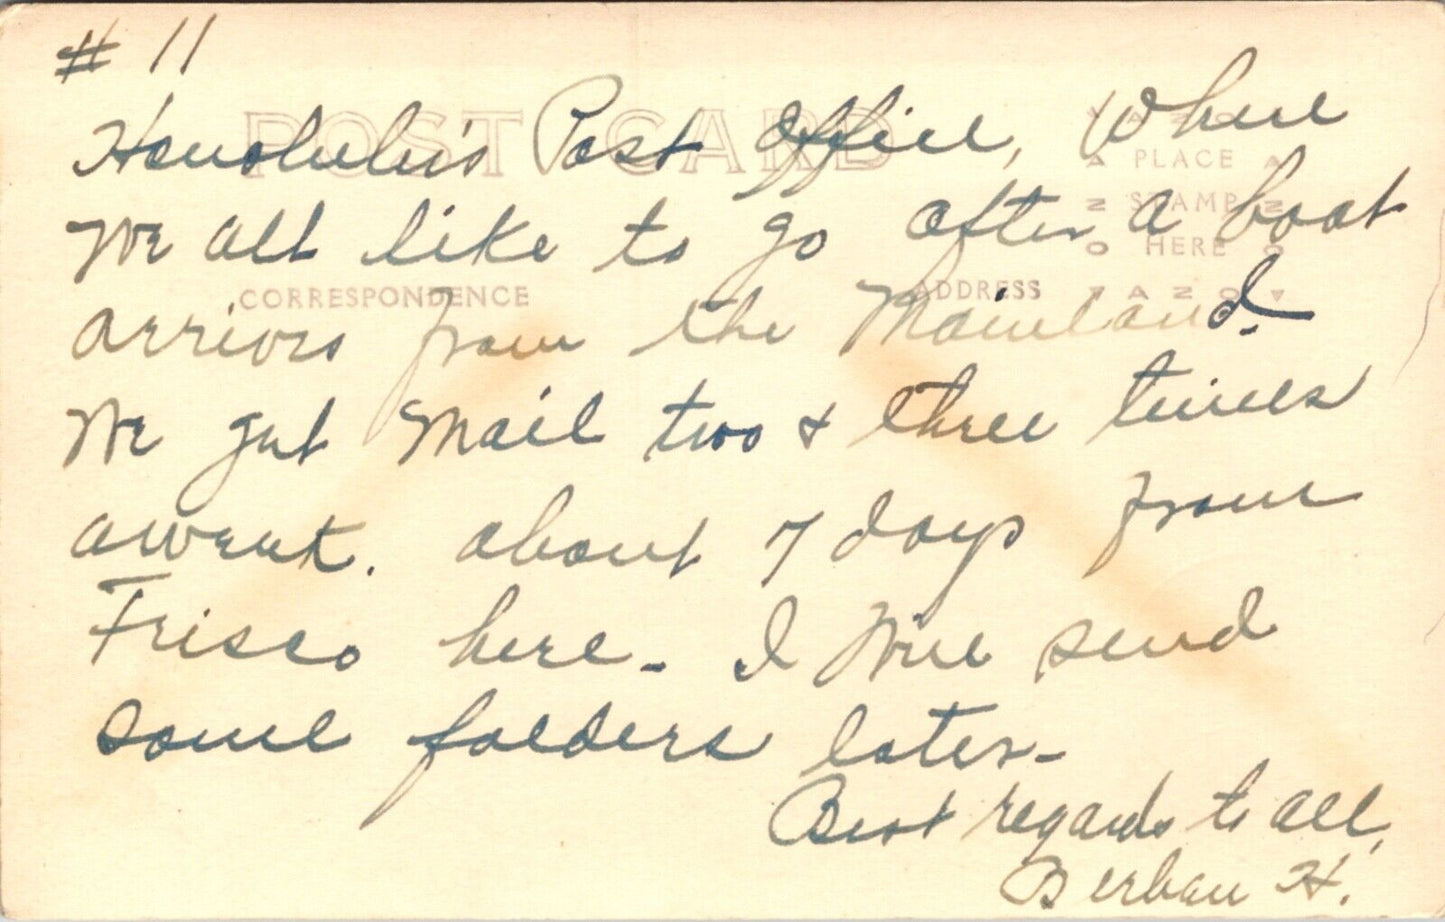 # 11
POST CARD
Honolulu's Post Office, Where
PLACE
STAMP
HERE
AZO
we all like to go after a boat
CORRESPONDENCE
ADDRESS
arrives from the Mainland.
We get Mail two & three times
a week. about 7 days from
Frisco here - I Will send
some folders later -
Best regards to all,
H.